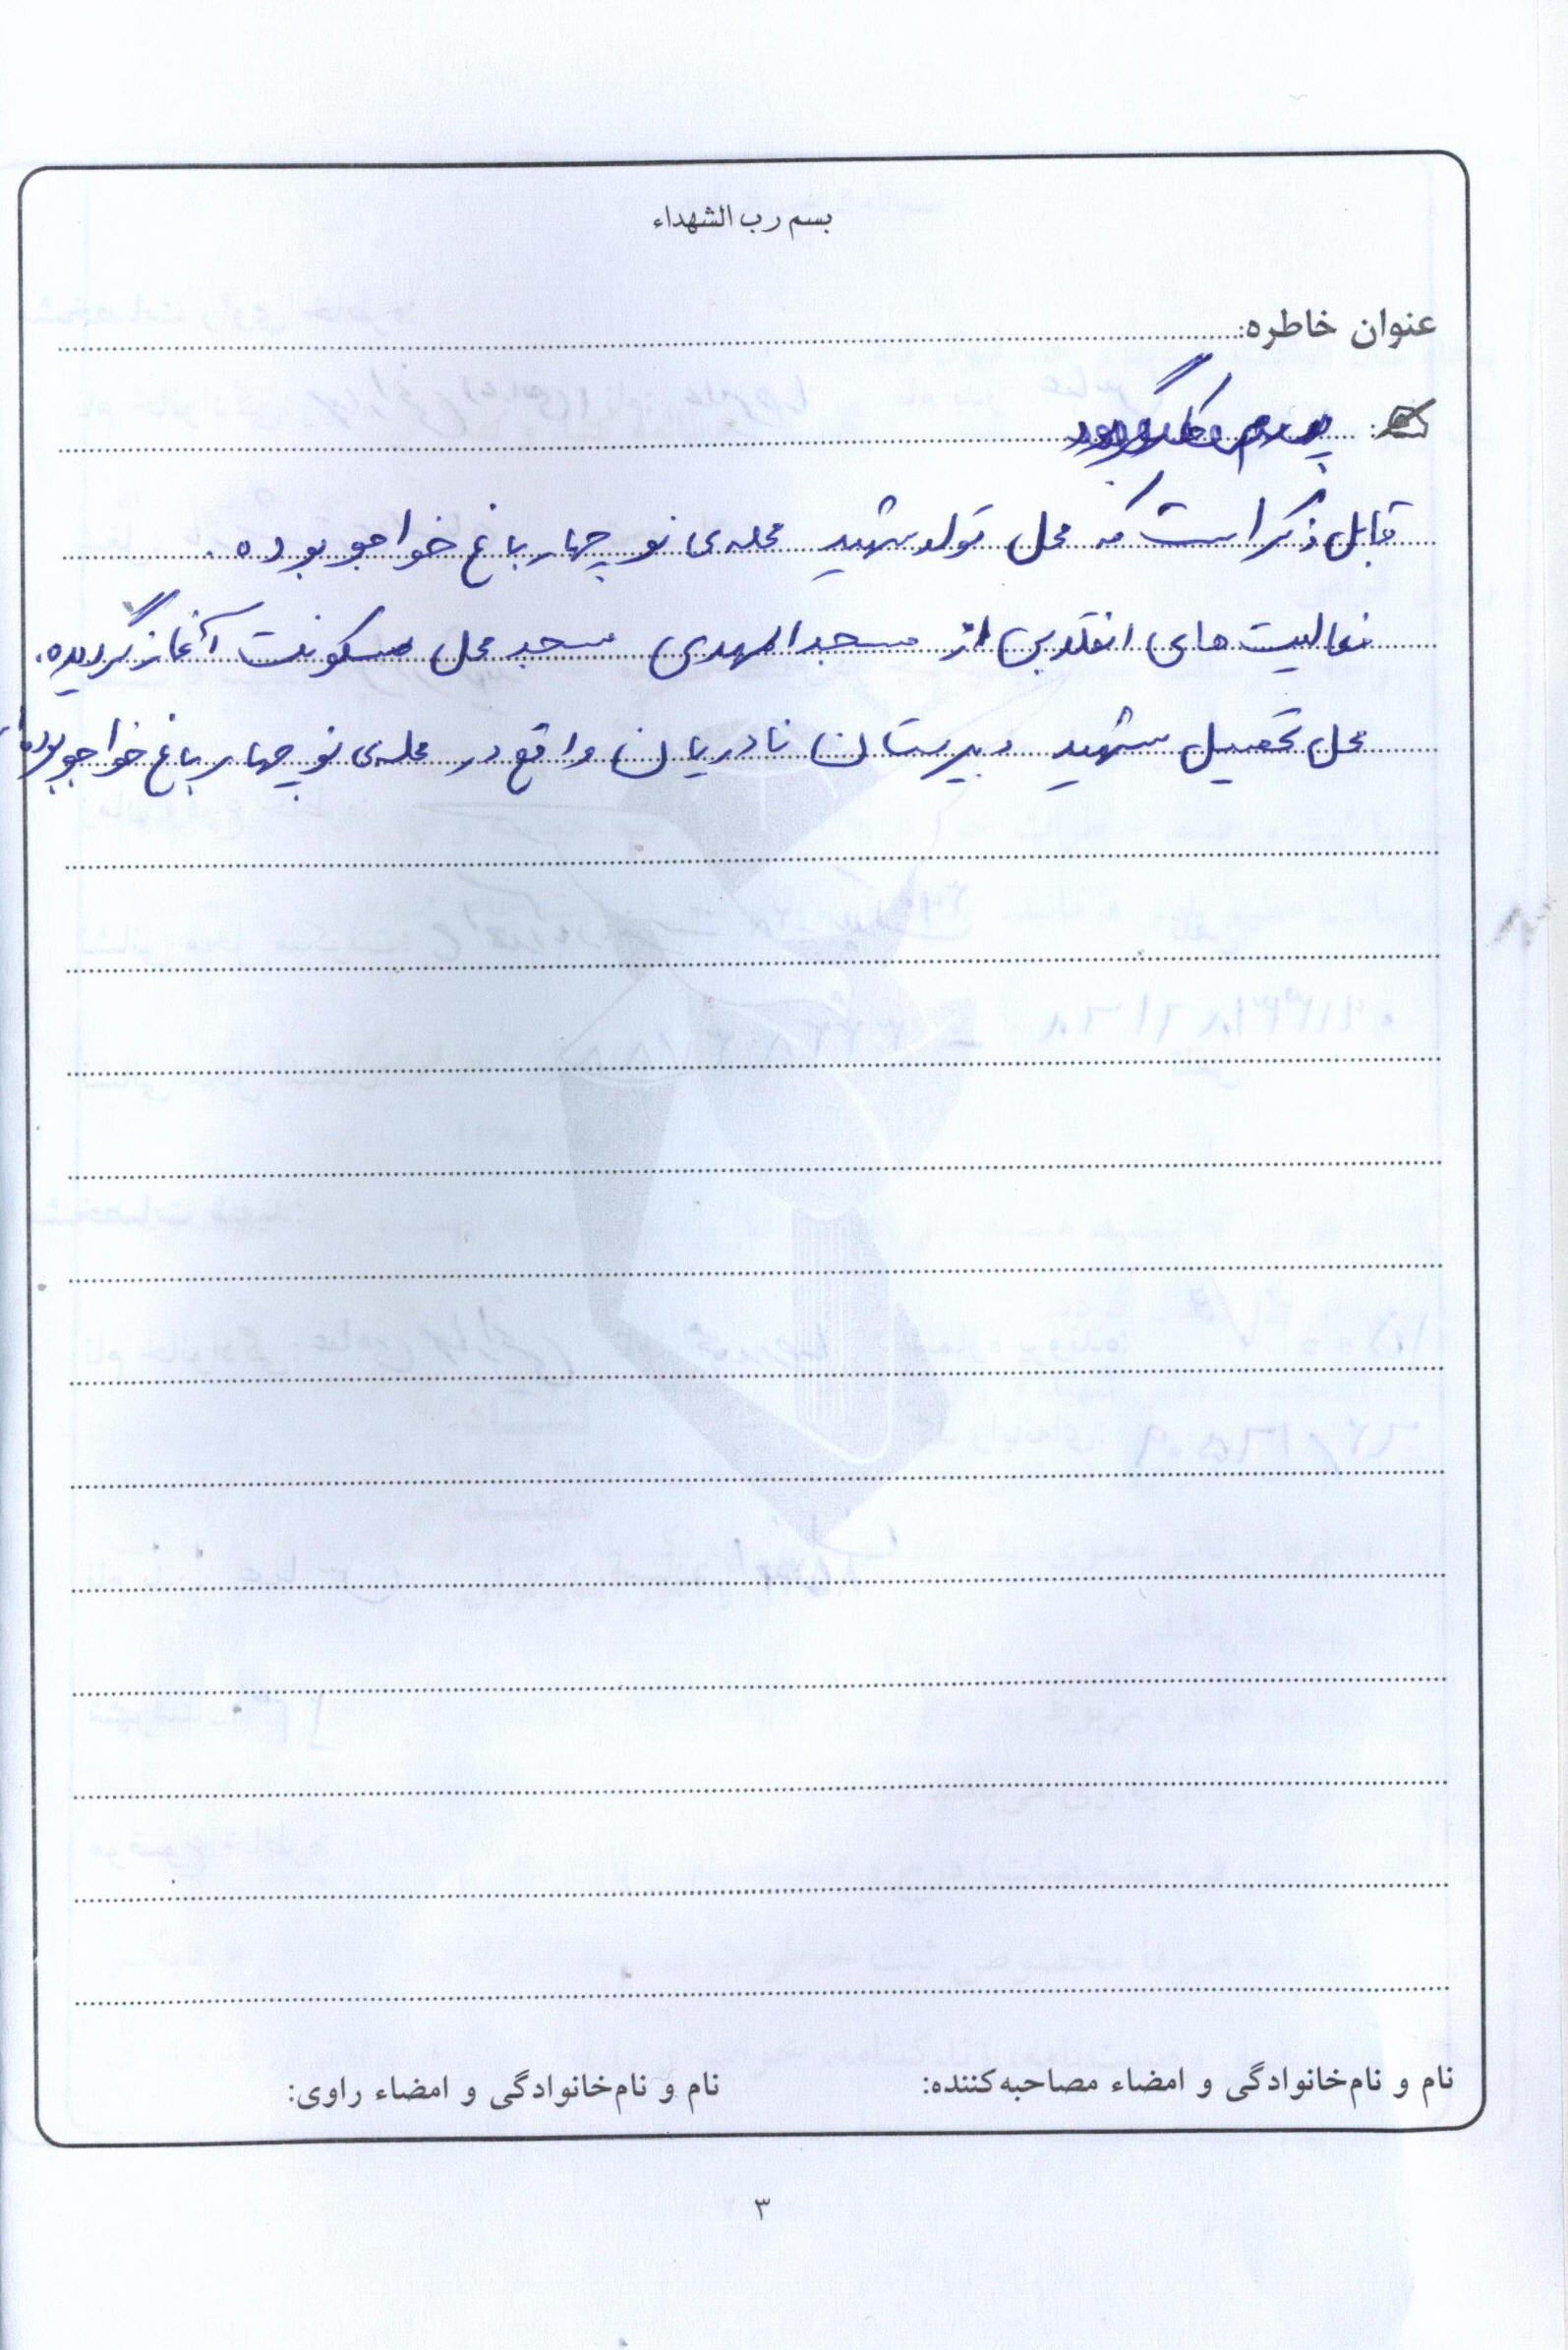 بسم رب الشهداء
عنوان خاطره:
قابل ذکر است که محل تولد شهید محله‌ی نو چهارباغ خواجو بوده.
فعالیت‌های انقلابی از مسجد المهدی مسجد محل سکونت آغاز گردیده.
محل تحصیل شهید دبیرستان نادریان واقع در محله‌ی نو چهارباغ خواجو بوده
نام و نام‌خانوادگی و امضاء مصاحبه‌کننده: نام و نام‌خانوادگی و امضاء راوی:
۳